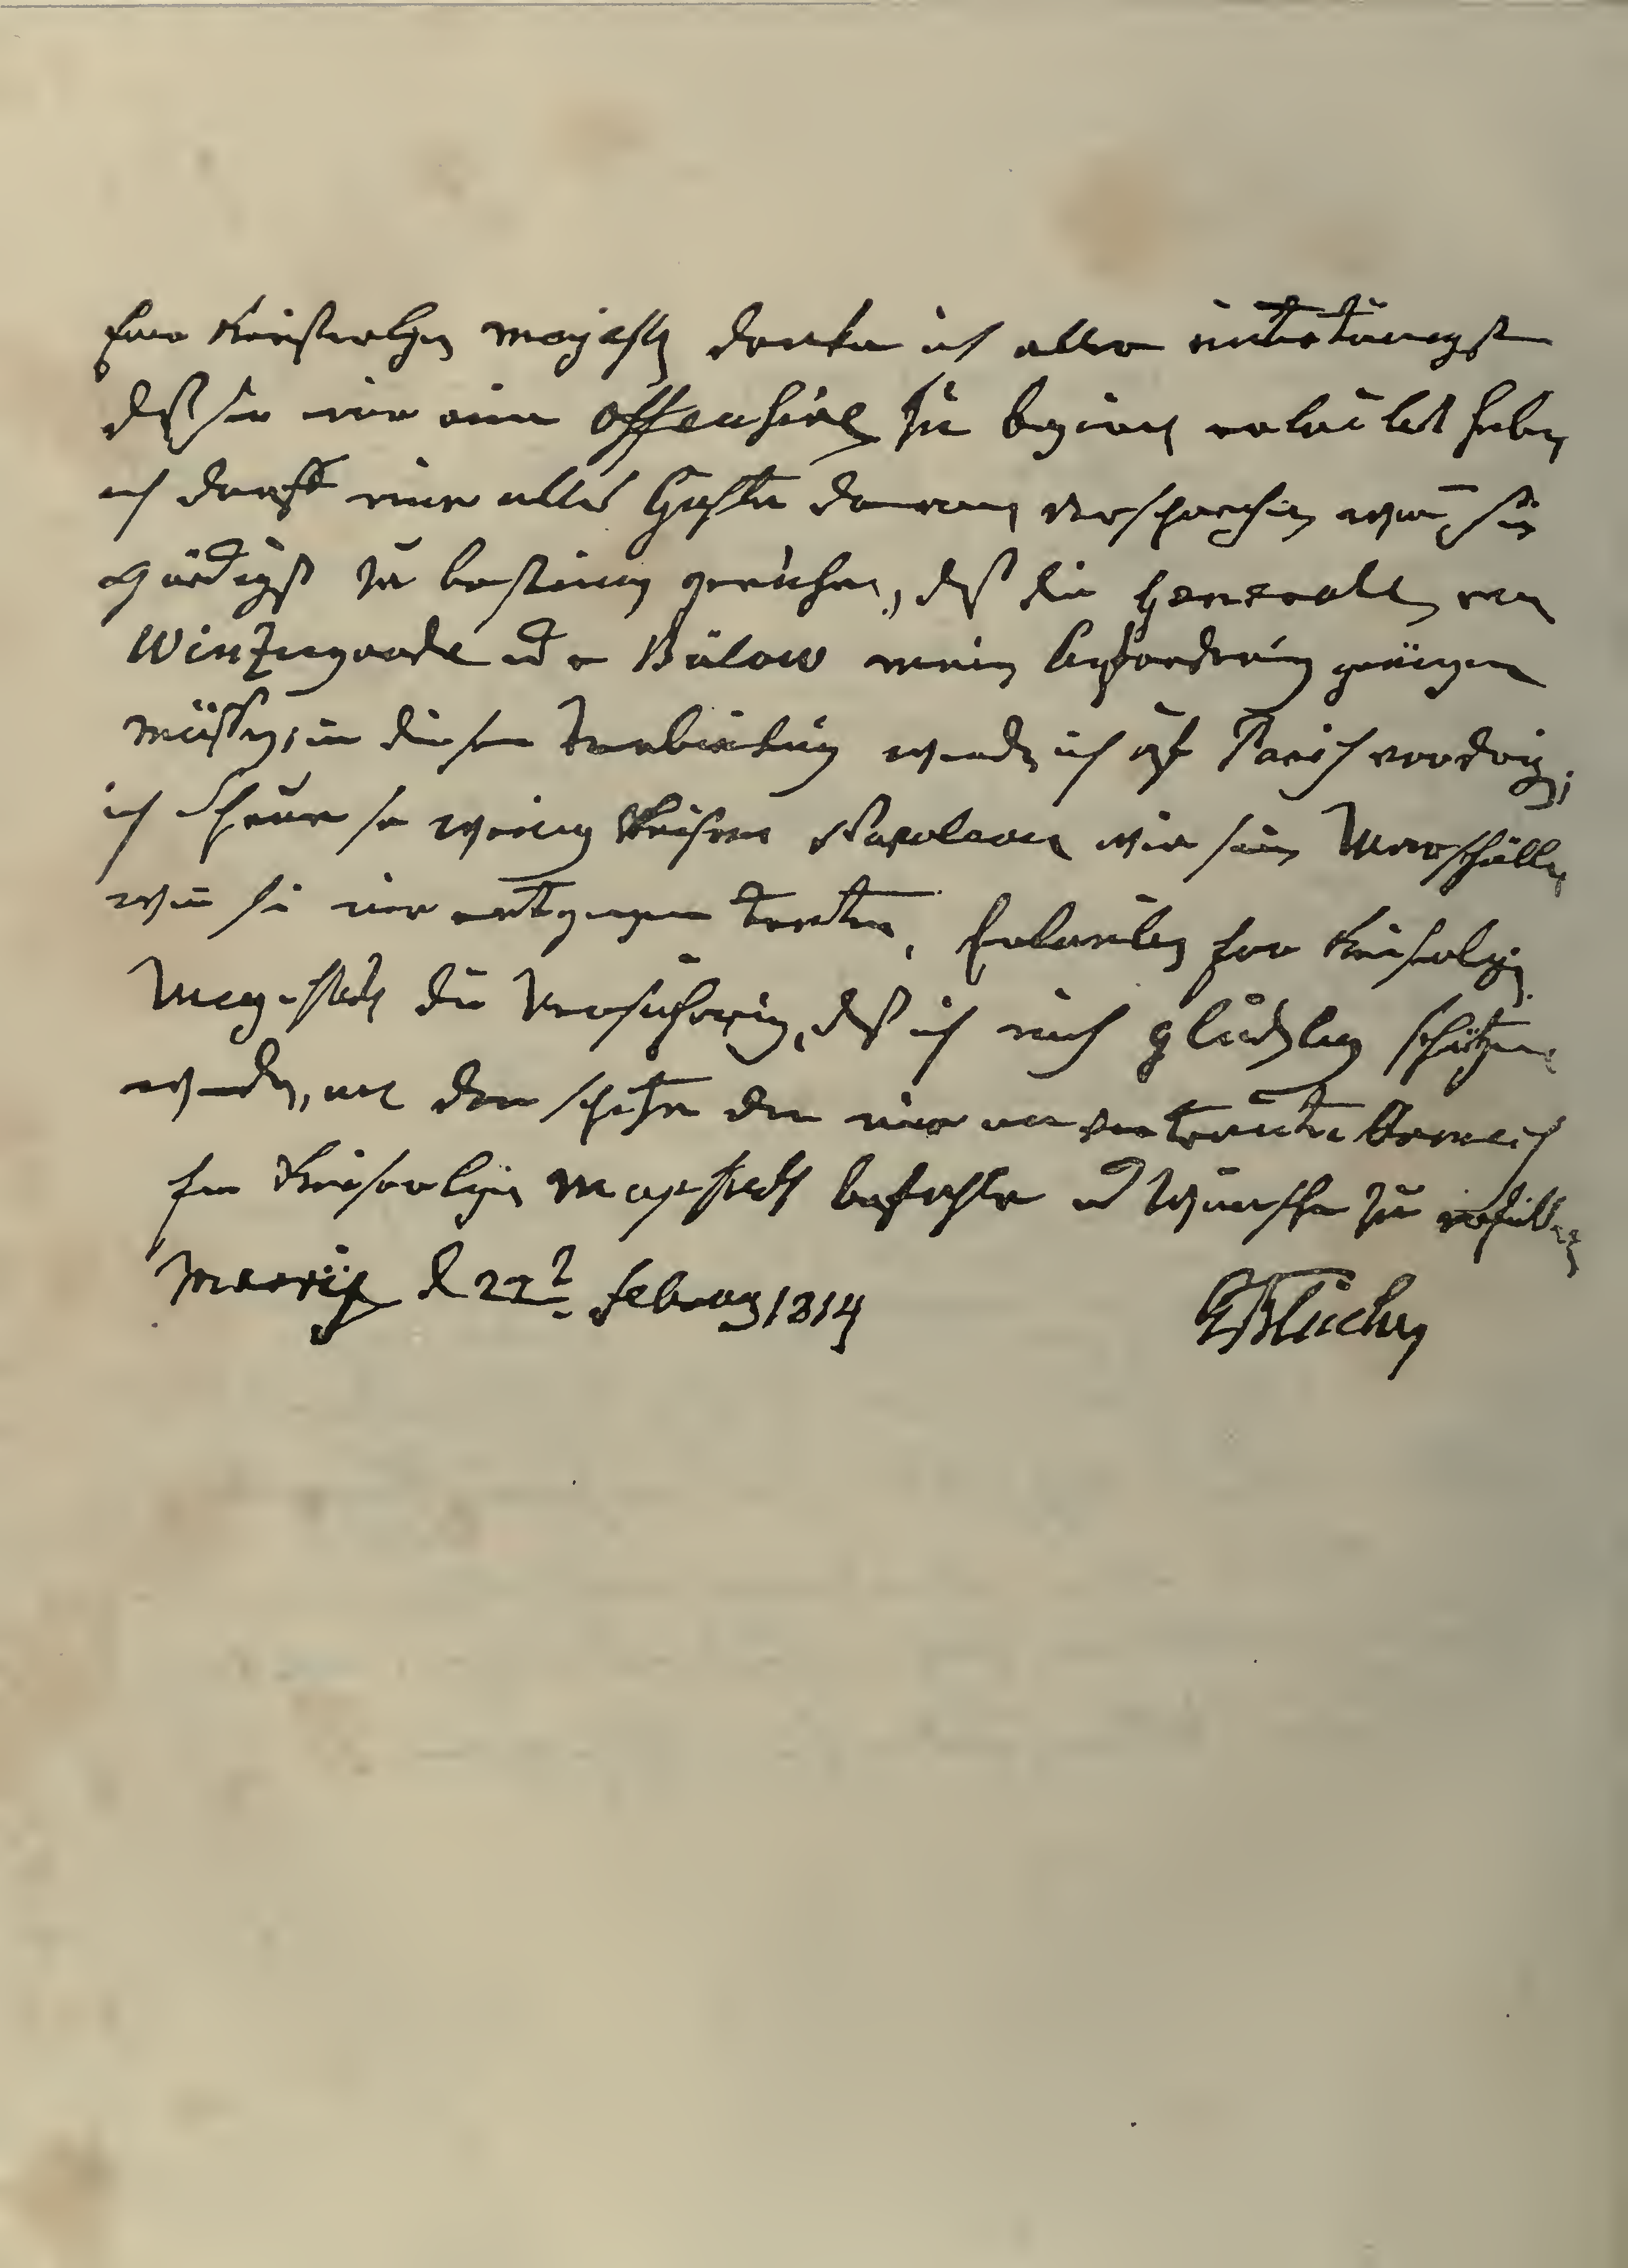 Euer Keiserlichen Majestet danke ich aller untertehnigst
daß sie mir eine offensive zu beginnen erlaubet haben
ich darf mir alles guhte davon versprechen wen sie
gnedigst zu bestimen geruhen, daß die Generalle von
Winzingerode und v Bülow meiner auforderung genügen
müssen, in dieser verbindung werde ich auf Paris vordringen,
ich scheue so wenig Keiser Napoleon wie seine Marschälle
wen sie mir entgegen treten. Erlauben Euer Keiserlichen
Majestet die Versicherung, daß ich mich glücklich schätzen
werde, an der spitze der mir an vertrauten Armee
Euer Keiserlichen Majestet befehle und Wünsche zu erfüllen
Merrij d 22t Februar 1814
GBlücher